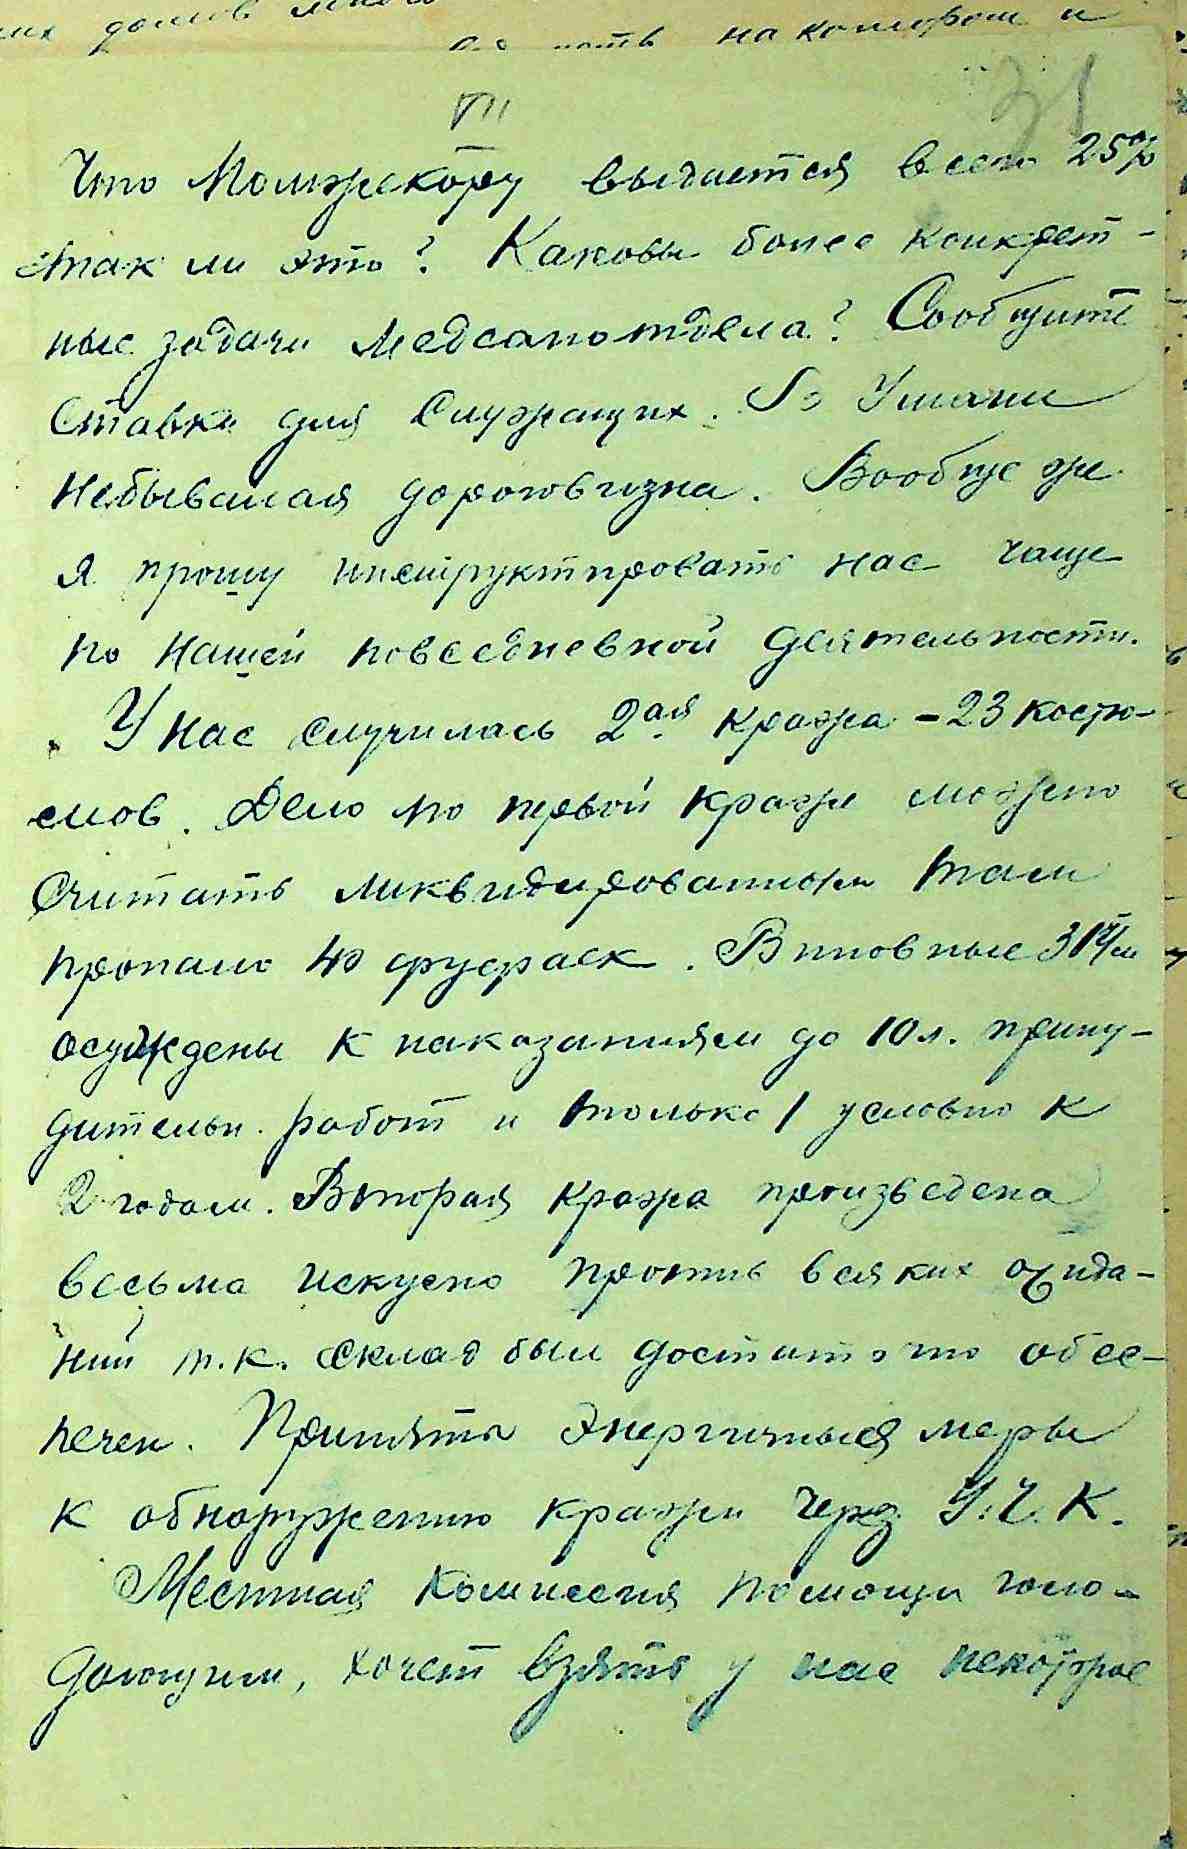 их домов много
на котором и
VII
31
Что Помежскору выдается всего 25%
так ли это? Каковы более конкрет-
ные задачи Медсанотдела? Сообщите
Ставки для Служащих. В Умани
Небывалая дороговизна. Вообще же
я прошу инструктировать нас чаще
по нашей повседневной деятельности.
У нас случилась 2ая кража – 23 костю-
мов. Дело по первой краже можно
Считать ликвидированным там
пропало 40 фуфаек. Виновные 3
осуждены к наказаниям до 10 л. прину-
дительн. работ и только 1 условно к
2 годам. Вторая кража произведена
весьма искусно против всяких ожида-
ний т.к. склад был достаточно обес-
печен. Приняты энергичныя меры
к обнаружению кражи через У.Ч.К.
Местная Комиссия помощи голо-
дающим, хочет взять у нас некоторые